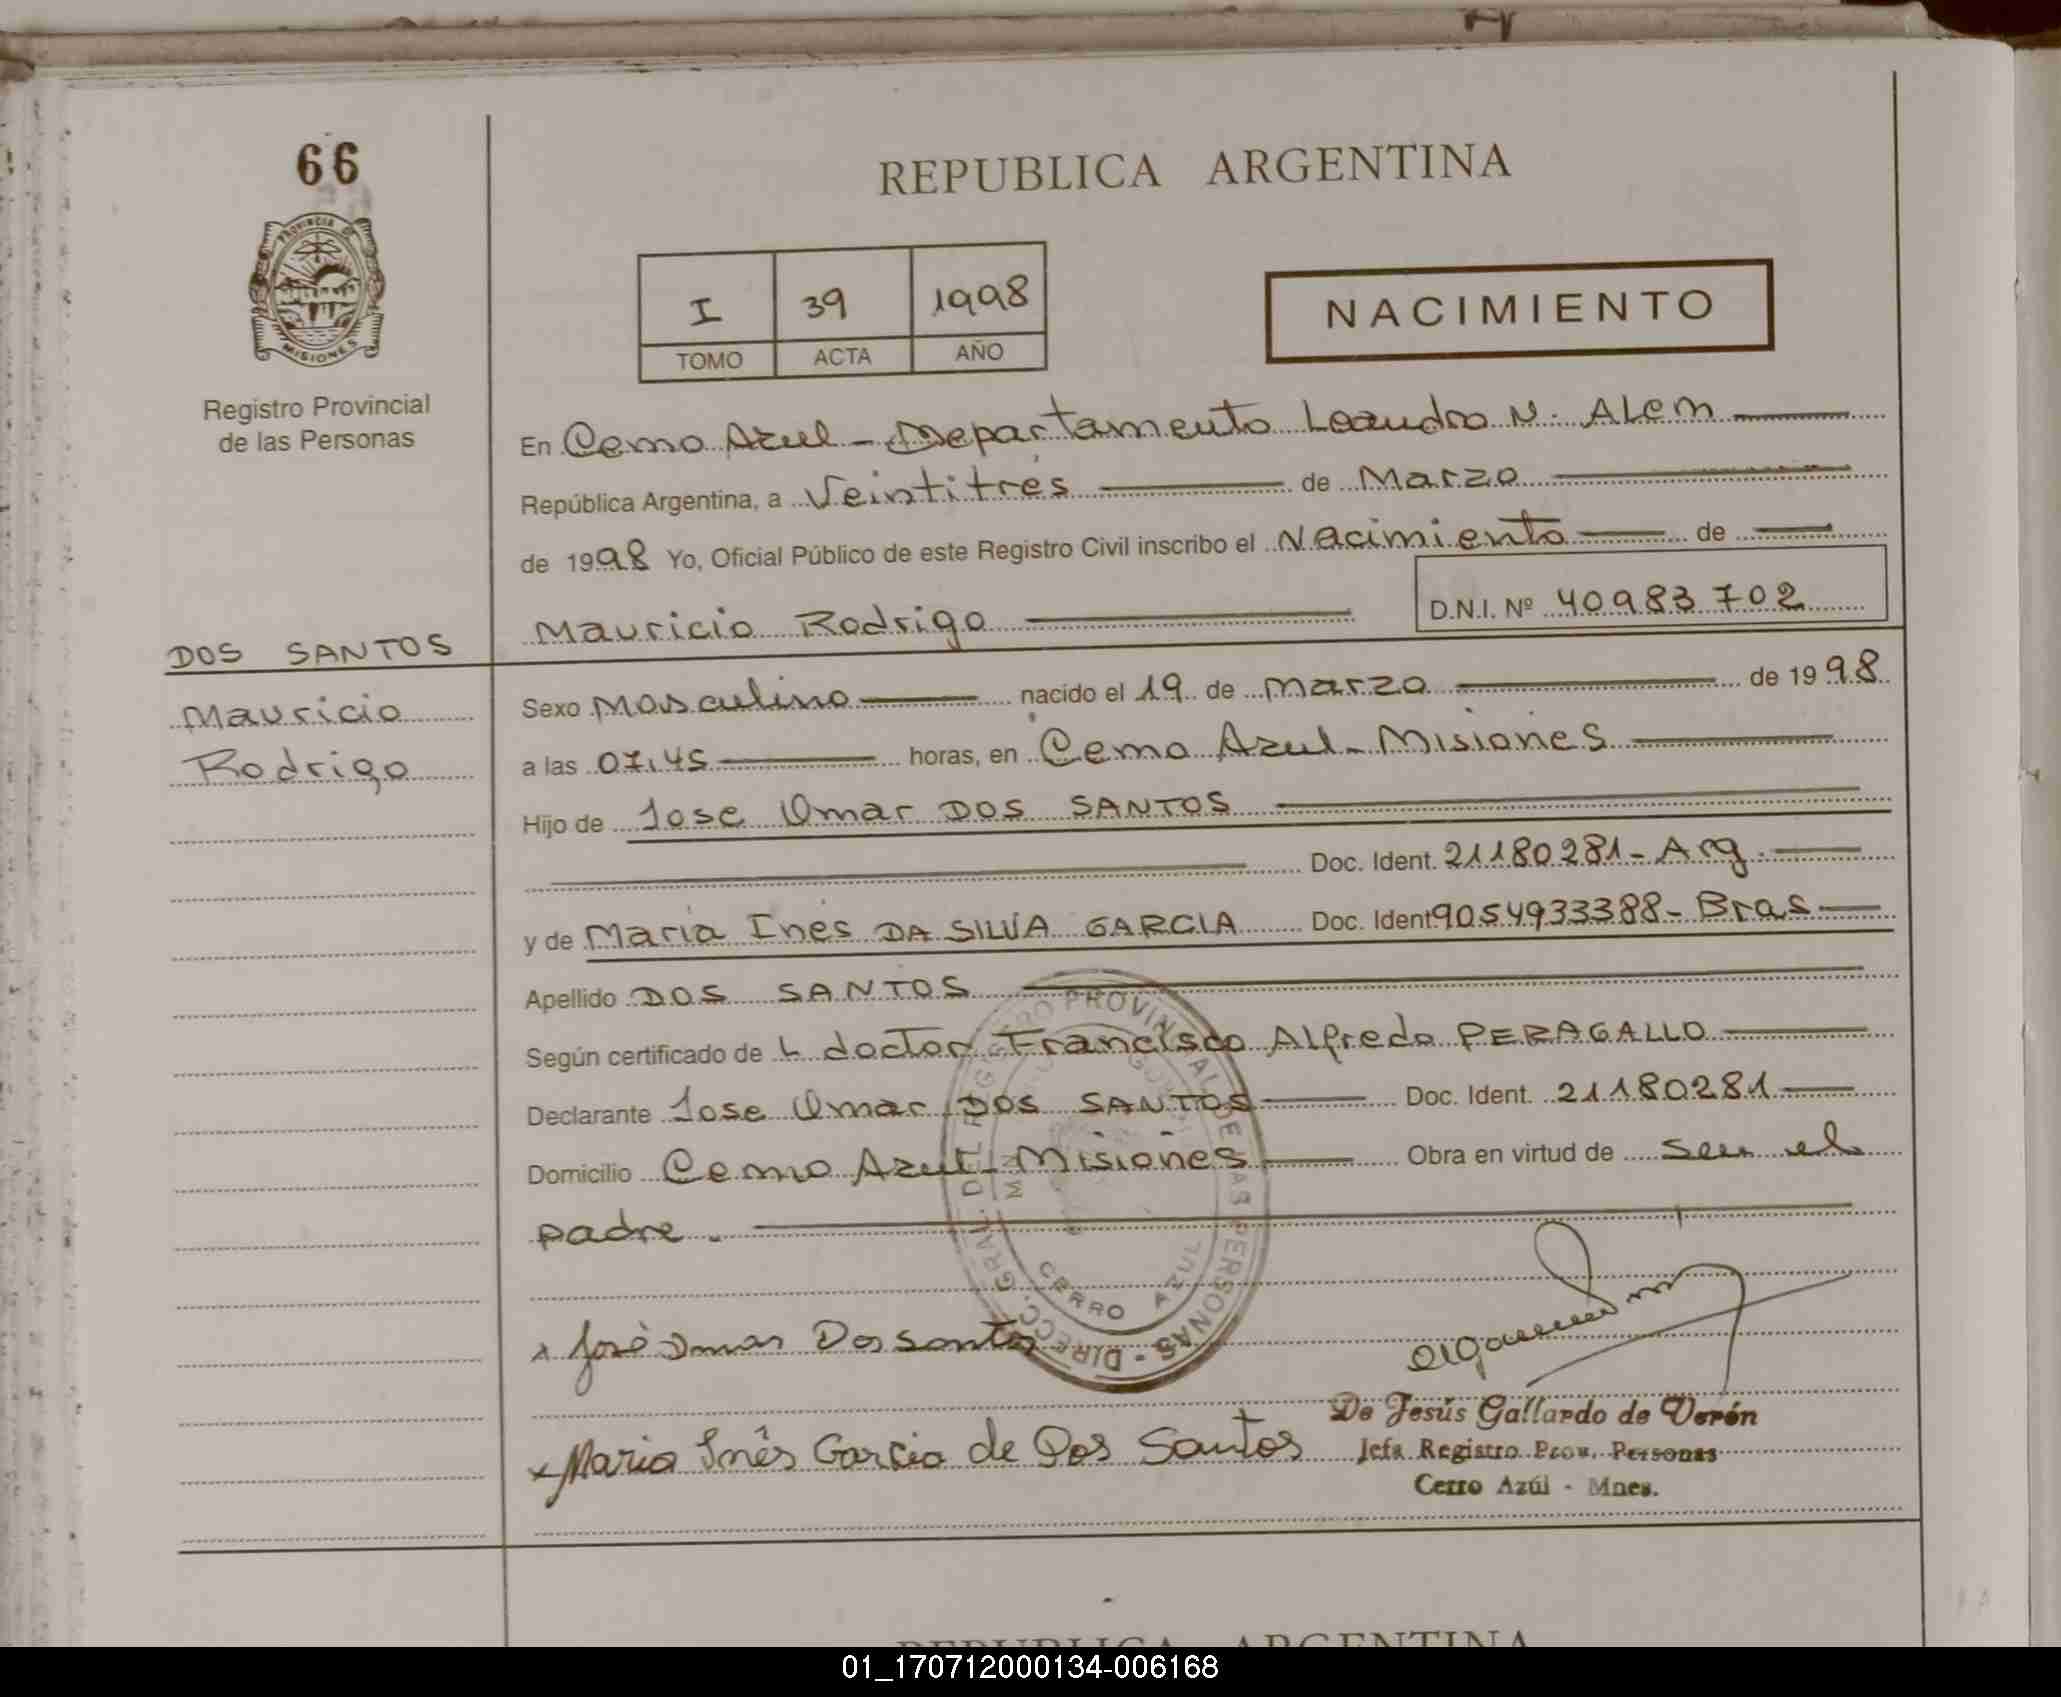 66
PROVINCIA DE
MISIONES
Registro Provincial
de las Personas
REPUBLICA ARGENTINA
I 39 1998
TOMO ACTA AÑO
NACIMIENTO
En Cerro Azul - Departamento Leandro N. Alem
República Argentina, a Veintitrés de Marzo
de 1998 Yo, Oficial Público de este Registro Civil inscribo el Nacimiento de
Mauricio Rodrigo D.N.I. Nº 40983702
DOS SANTOS
Mauricio
Rodrigo
Sexo Masculino nacido el 19 de Marzo de 1998
a las 07,45 horas, en Cerro Azul - Misiones
Hijo de Jose Omar DOS SANTOS
Doc. Ident. 21180281 - Arg.
y de Maria Inés DA SILVA GARCIA Doc. Ident 9054933388 - Bras
Apellido DOS SANTOS
Según certificado de L doctor Francisco Alfredo PERAGALLO
Declarante Jose Omar DOS SANTOS Doc. Ident. 21180281
Domicilio Cerro Azul - Misiones Obra en virtud de ser el
padre.
DIRECC. GRAL. DEL REGISTRO PROVINCIAL DE LAS PERSONAS -
CERRO AZUL
x José Omar Dos santos
x Maria Inês Garcia de Dos Santos
De Jesús Gallardo de Verón
Jefa Registro Prov. Personas
Cerro Azúl - Mnes.
REPUBLICA ARGENTINA
01_170712000134-006168